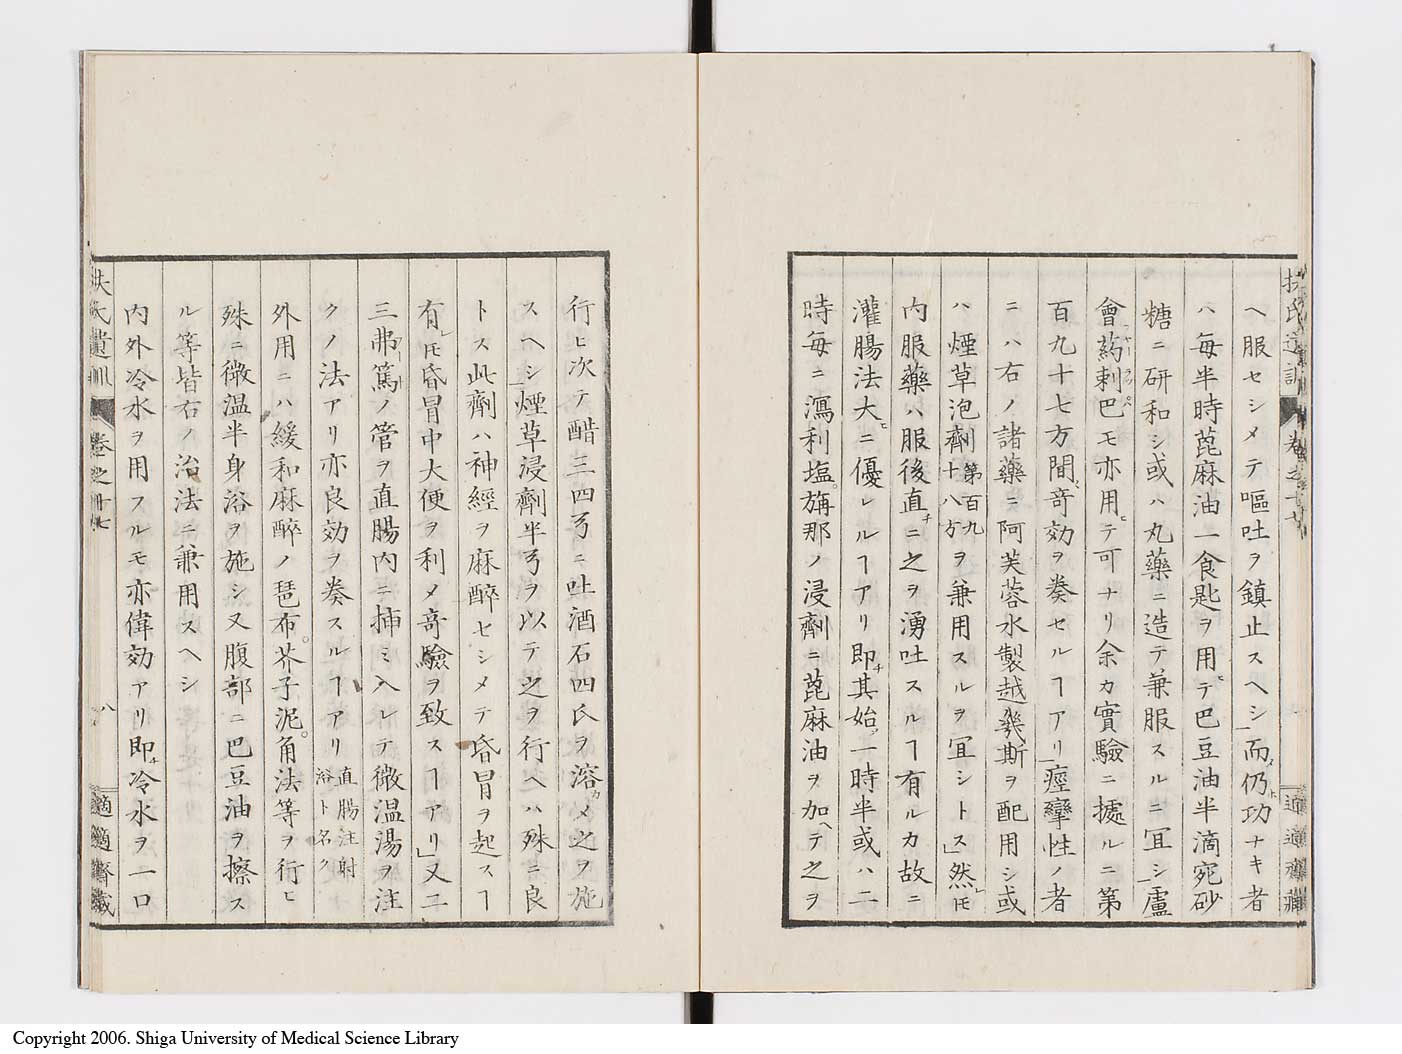 扶氏遺訓 卷之十七 適適齋藏
ヘ服セシメテ嘔吐ヲ鎮止スヘシ」而メ仍ホ功ナキ者
ハ毎半時蓖麻油一食匙ヲ用ヒテ巴豆油半滴宛砂
糖ニ研和シ或ハ丸藥ニ造テ兼服スルニ冝シ」盧
會葯剌巴モ亦用ヒテ可ナリ余カ實驗ニ據ルニ第
百九十七方間奇効ヲ奏セルヿアリ」痙攣性ノ者
ニハ右ノ諸藥ニ阿芙蓉水製越幾斯ヲ配用シ或
ハ煙草泡劑第百九十八方ヲ兼用スルヲ冝シトス」然レ𪜈
内服藥ハ服後直チニ之ヲ湧吐スルヿ有ルカ故ニ
灌腸法大ヒニ優レルヿアリ即チ其始メ一時半或ハ二
時毎ニ瀉利塩。旃那ノ浸劑ニ蓖麻油ヲ加ヘテ之ヲ
行ヒ次テ醋三四弓ニ吐酒石四氏ヲ溶カメ之ヲ施
スヘシ」煙草浸劑半弓ヲ以テ之ヲ行ヘハ殊ニ良
トス此劑ハ神經ヲ麻醉セシメテ昏冒ヲ起スヿ
有レ𪜈昏冒中大便ヲ利メ奇驗ヲ致スヿアリ」又二
三弗篤ノ管ヲ直腸内ニ挿ミ入レテ微温湯ヲ注
クノ法アリ亦良効ヲ奏スルヿアリ直腸注射浴ト名ク
外用ニハ緩和麻醉ノ琶布。芥子泥。角法等ヲ行ヒ
殊ニ微温半身浴ヲ施シ又腹部ニ巴豆油ヲ擦ス
ル等皆右ノ治法ニ兼用スヘシ
内外冷水ヲ用スルモ亦偉効アリ即チ冷水ヲ一口
扶氏遺訓 卷之十七 八 適適齋藏
Copyright 2006. Shiga University of Medical Science Library